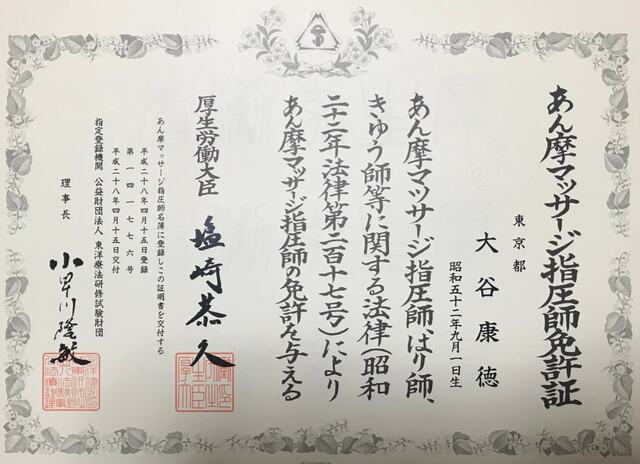 あん摩マッサージ指圧師免許証
東京都
大谷康徳
昭和五十二年九月一日生
あん摩マツサージ指圧師、はり師、
きゆう師等に関する法律(昭和
二十二年法律第二百十七号)により
あん摩マッサージ指圧師の免許を与える
厚生労働大臣 塩崎恭久
あん摩マッサージ指圧師名簿に登録しこの証明書を交付する
平成二十八年四月十五日登録
第一四一七七六号
平成二十八年四月十五日交付
指定登録機関 公益財団法人 東洋療法研修試験財団
理事長 小早川隆敏